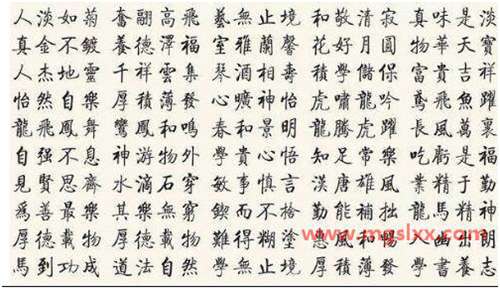 人淡如菊 奮翮高飛 藝無止境 和敬清寂 真味是淡
真金不鍍 養德澤福 室雅蘭馨 花好月圓 物華天寶
人杰地靈 千祥雲集 琴酒 壽 學儲保 富貴吉祥
怡然自樂 厚積薄發 心曠神怡 虎嘯龍吟 鳶飛魚躍
龍飛鳳舞 鸞鳳和鳴 春和景明 龍騰虎躍 長風萬裏
自强不息 神游物外 學貴心悟 知足常樂 吃虧是福
見賢思齊 水滴石穿 敏事慎言 漢唐雄風 業精于勤
爲善最樂 其樂無窮 鍥而不捨 勤能補拙 龍馬精神
厚德載物 難得糊塗 惠風和暢 人
馬到功成 道法自然 學無止境 厚積薄發 書養志